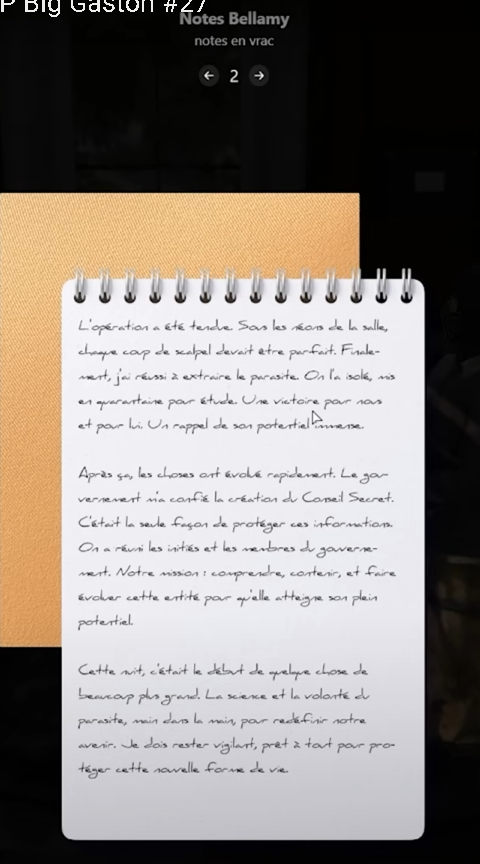 P Big Gaston #27
Notes Bellamy
notes en vrac
2
L'opération a été tendue. Sous les néons de la salle,
chaque coup de scalpel devait être parfait. Finale-
ment, j'ai réussi à extraire le parasite. On l'a isolé, mis
en quarantaine pour étude. Une victoire pour nous
et pour lui. Un rappel de son potentiel immense.
Après ça, les choses ont évolué rapidement. Le gou-
vernement m'a confié la création du Conseil Secret.
C'était la seule façon de protéger ces informations.
On a réuni les initiés et les membres du gouverne-
ment. Notre mission : comprendre, contenir, et faire
évoluer cette entité pour qu'elle atteigne son plein
potentiel.
Cette nuit, c'était le début de quelque chose de
beaucoup plus grand. La science et la volonté du
parasite, main dans la main, pour redéfinir notre
avenir. Je dois rester vigilant, prêt à tout pour pro-
téger cette nouvelle forme de vie.